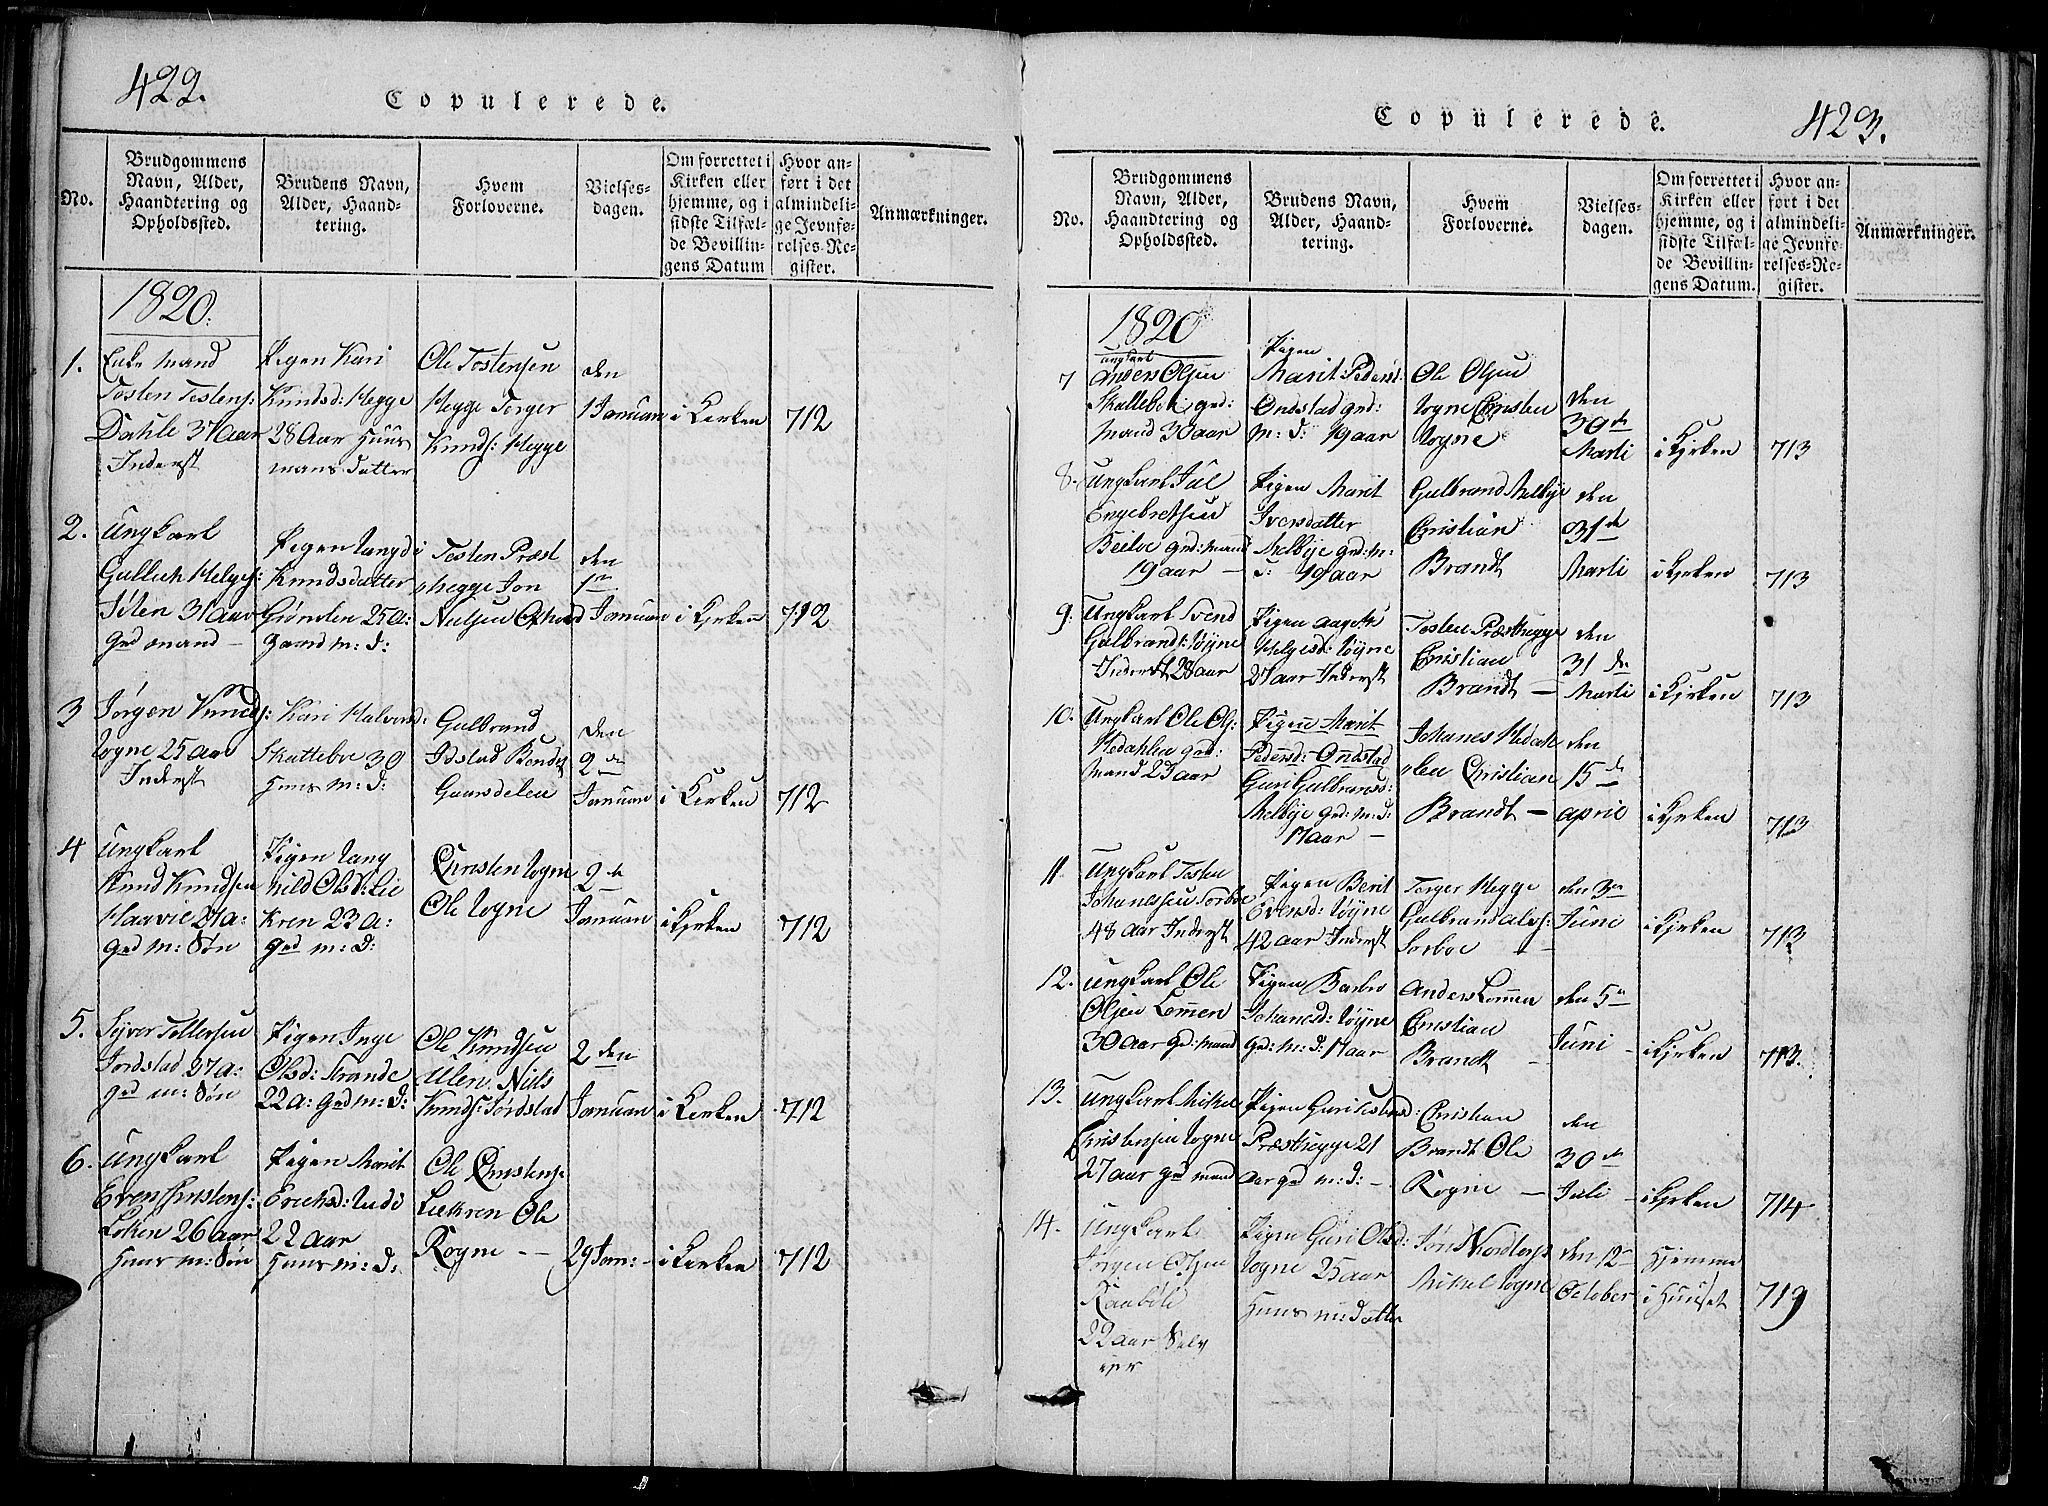 422.
Copulerede.
No.
Brudgommens
Navn, Alder,
Haandtering og
Opholdssted.
Brudens Navn,
Alder, Haand-
tering.
Hvem
Forloverne.
Vielses-
dagen.
Om forrettet i
Kirken eller
hjemme, og i
sidste Tilfæl-
de Bevillin-
gens Datum
Hvor an-
ført i det
almindeli-
ge Jevnfø-
relses-Re-
gister.
Anmærkninger.
1820.
1.
Enke Mand
Tosten Tostens:
Dahle 31 Aar
Inderst
Pigen Kari
Knudsd: Hegge
28 Aar Huus
mans datter
Ole Tostensen
Hegge Torger
Knuds: Hegge
den
1 Januari
i Kirken
712
2.
Ungkarl
Gullich Helges:
31 Aar
Grd mand
Pigen
Knudsdatter
25 a:
gaard m: d:
Tosten Præst
Hegge Jon
Nielsen
den
1te
Januari
i Kirken
712
3
Jørgen Knuds:
Vogne 25 Aar
Inderst
Kari Halvors:
Skatteboe 30
Huus m: d:
Gulbrand
Idstad
Gaardelen
den
2de
Januari
i Kirken
712
4
Ungkarl
Knud Knudsen
Haavie 27 a:
Grd m: Søn
Pigen Rang
nild Olsd: Lie
Kren 23 a:
grd m: D:
Christen Vogne
Ole Vogne
2de
Januari
i Kirken
712
5.
Syver Tollersen
Jordstad 27 a:
grd m: Søn
Pigen Inge
Olsd: Strande
22 a: grd m: d:
Ole Knudsen
Ulen. Niels
Knuds: Jordstad
2 den
Januari
i Kirken
712
6.
Ungkarl
Even Christens:
Løken 26 aar
Huus m: Søn
Pigen Marit
Erichsd:
22 Aar
Huus m: d:
Ole Christens:
Liekren Ole
Rogne
29 Jan:
i Kirken
712
423.
Copulerede.
No.
Brudgommens
Navn, Alder,
Haandtering og
Opholdssted.
Brudens Navn,
Alder, Haand-
tering.
Hvem
Forloverne.
Vielses-
dagen.
Om forrettet i
Kirken eller
hjemme, og i
sidste Tilfæl-
de Bevillin-
gens Datum.
Hvor an-
ført i det
almindeli-
ge Jevnfø-
relses-Re-
gister.
Anmærkninger.
1820
7
Ungkarl
Anders Olsen
Skatteboe, grd:
mand 30 aar
Pigen
Marit Pedersd:
Ondstad grd:
m: d: 19 aar
Ole Olsen
Vogne Christen
Vogne
den
30te
Marti
i Kirken
713
8.
Ungkarl Jul
Engebretsen
grd: mand
19 aar
Pigen Marit
Iversdatter
Melbye grd: m:
d: 19 aar
Gulbrand Melbye
Christian
Brandt
den
31te
Marti
i Kirken
713
9.
Ungkarl Svend
Gulbrands: Vøyne
Inderst 28 aar
Pigen Aagoth
Helgesd: Vøyne
27 aar Inderst
Tosten Præsthegge
Christian
Brandt
den
31 de
Marti
i Kirken
713
10.
Ungkarl Ole Ols:
Hedahlen grd:
mand 23 aar
Pigen Marit
Pedersd: Ondstad
Guri Gulbrandsd:
Melbye grd: m: d:
17 aar
Johanes Hedah
len Christian
Brandt
den
15 de
april
i Kirken
713
11.
Ungkarl Tosten
Johanesen Sorboe
48 aar Inderst
Pigen Berit
Evensd: Vøyne
42 aar Inderst
Torger Hegge
Gulbrand
Sorboe
den 3die
Juni
i Kirken
713
12.
Ungkarl Ole
Olsen Lomen
30 aar grd: mand
Pigen Barbro
Johanesd: Vøyne
grd: m: d: 17 aar
Anders Lomen
Christian
Brandt
den 5te
Juni
i Kirken
713.
13.
Ungkarl Mikel
Christensen Vogne
27 aar grd mand
Pigen Guri Tostensd:
Præsthegge 21
aar grd m: d:
Christian
Brandt Ole
Rogne
den
30te
Juli
i Kirken
714
14.
Ungkarl
Jørgen Olsen
Raabøle
22 aar Selv
Pigen Guri Olsd:
Vogne 25 aar
Huus m: datter
Jørn Nordtorp
Mikel Vogne
den 12te
October
Hjemme
i Huuset
719